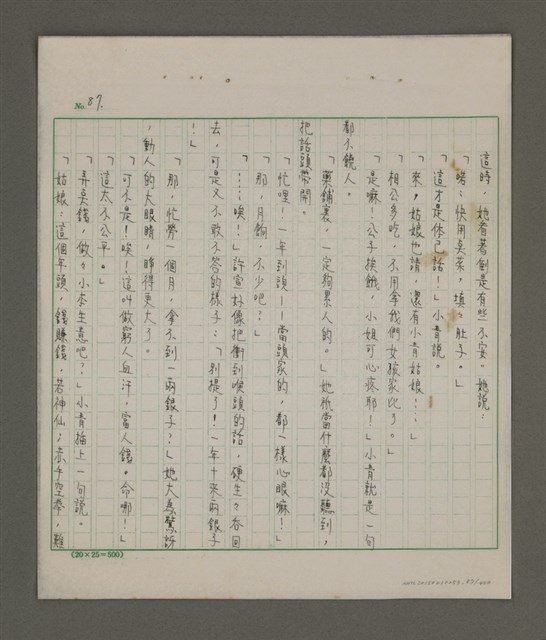 No. 87.
這時，她看著倒是有些不安。她說：
「喏：快用桌菜，填々肚子。」
「這才是体己話！」小青說。
「來，姑娘也請，還有小青姑娘……」
「相公多吃，不用拿我們女孩家比了。」
「是嘛！公子挨餓，小姐可心疼耶！」小青就是一句
都不饒人。
「藥鋪裏，一定夠累人的。」她祇當什麼都沒聽到，
把話頭帶開。
「忙哩！一年到頭——當頭家的，都一樣心眼嘛！」
「那，月餉，不少吧？」
「……唉！」許宣好像把衝到喉頭的話，硬生々吞回
去，可是又不敢不答的樣子：「別提了！一年十來兩銀子
！」
「那，忙勞一個月，拿不到一兩銀子？」她大為驚訝
，動人的大眼睛，睜得更大了。
「可不是！唉！這叫做窮人血汗，富人錢。命哪！」
「這太不公平。」
「弄桌錢，做々小本生意吧？」小青插上一句說。
「姑娘：這個年頭，錢賺錢，若神仙；赤手空拳，難
(20×25=500)